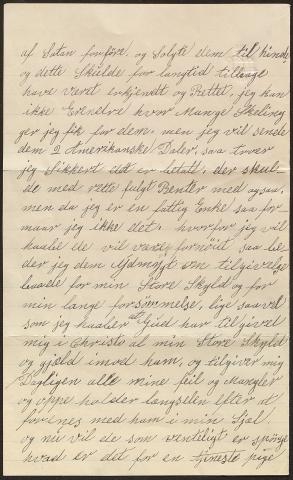 af Satan forföre, og Solgte dem til hende
og dette Skulde for langtid tilbage
have veret erkjendt og Rettet, jeg kan
ikke Erendre hvor Mange Skeling
ger jeg fik for dem, men jeg vil sende
dem 2 Amerikanske Daler, saa troer
jeg Sikkert det er betalt, der skul
de med rette fulgt Renter med ogsaa,
men da jeg er en fattig Enke saa for-
maar jeg ikke det, hvorfor jeg vil
haabe de vil være fornöiet saa be
der jeg dem Ydmygt om tilgivelse
baade for min Store Skyld og for
min lange forsömmelse, lige saavel
som jeg haaber at Gud har tilgivet
mig i Christo al min Store Skyld
og gjæld imod ham, og tilgiver mig
Dagligen alle mine feil og Mangler
og oppe holder længselen efter at
forenes med ham i min Sjæl
og nu vil de som venteligt er spörge
hvad er det for en tjeneste pige